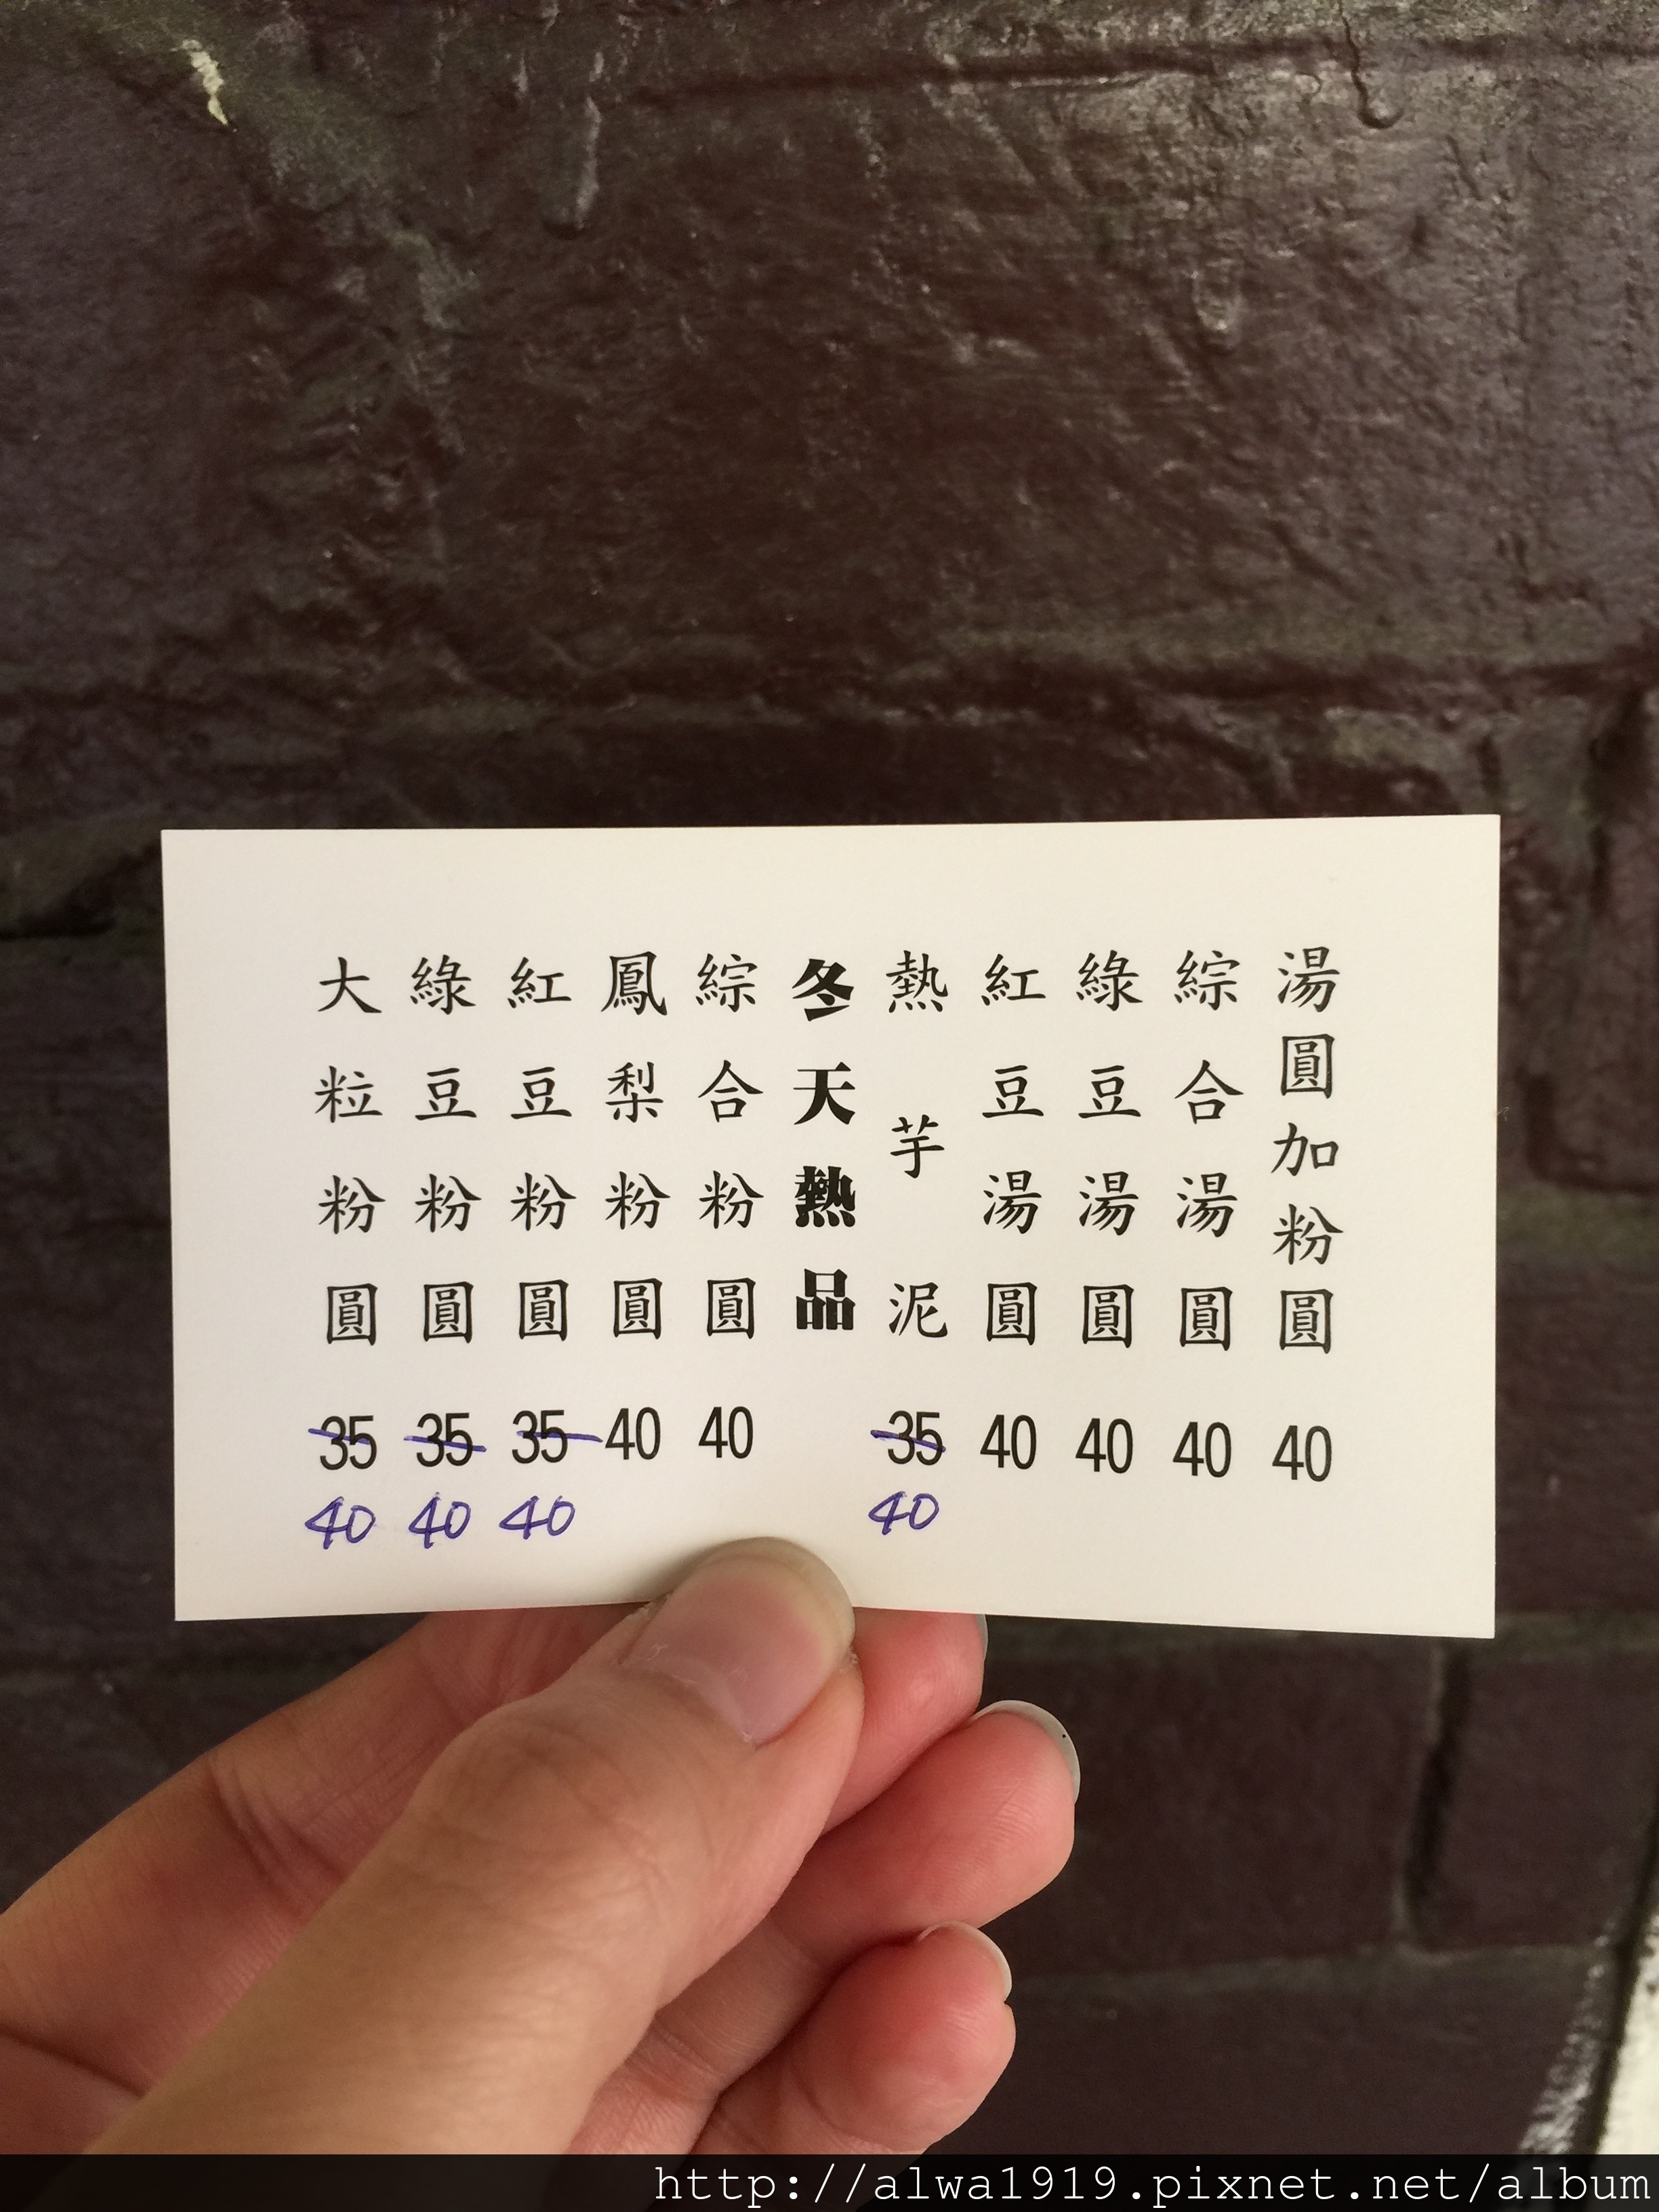 大粒粉圓 35 40
綠豆粉圓 35 40
紅豆粉圓 35 40
鳳梨粉圓 40
綜合粉圓 40
冬天熱品
熱芋泥 35 40
紅豆湯圓 40
綠豆湯圓 40
綜合湯圓 40
湯圓加粉圓 40
http://alwa1919.pixnet.net/album